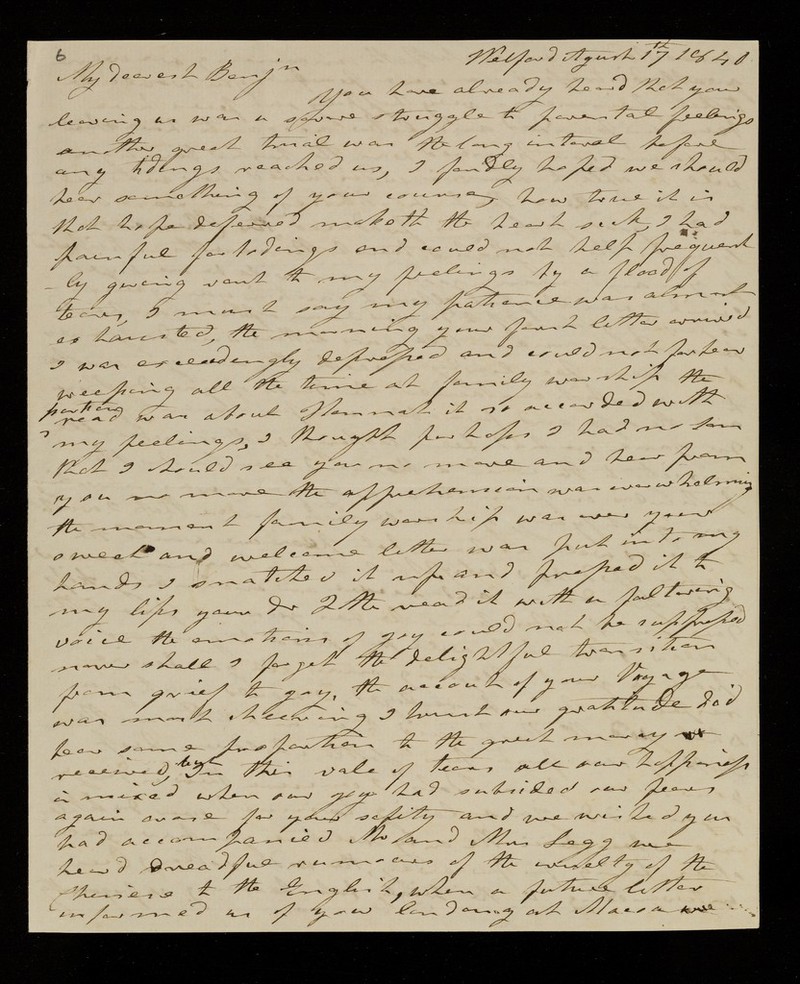 6
Welford Agust 17th 1840
My dearest Benjn
You have already heard that your
leaving us was a severe struggle to parental feelings
another great trial was the long interval before
any tidings reached us, I fondly hoped we should
hear something of your course, how true it is
that hope deferred maketh the heart sick, I had
painful forbodings and could not help frequent
-ly giving vent to my feelings by a flood of
tears, I must say my patience was almost
exhausted, the morning your first letter arrived
I was exceedingly depressed and could not forbear
weeping all the time at family worship the
portion
read was about Hannah it so accorded with
my feelings, I thought perhaps I had no son
that I should see you no more and hear from
you no more the apprehension was overwhelming
the moment family worship was over your
sweet and welcome letter was put into my
hands I snatched it up and pressed it to
my lips your dr Father read it with a faltering
voice the emotions of joy could not be suppressed
never shall I forget the delightful transition
from grief to joy, the account of your Voyage
was most cheering I trust our gratitude did
bear some proportion to the great mercy
received, but In this vale of tears all our happiness
is mixed when our joy had subsided our fears
again arose for your safity and we wished you
had accompanied Mr and Mrs Legg we
heard dreadful rumours of the cruelty of the
Chinese to the English, when a future letter
informed us of your landing at Macao we